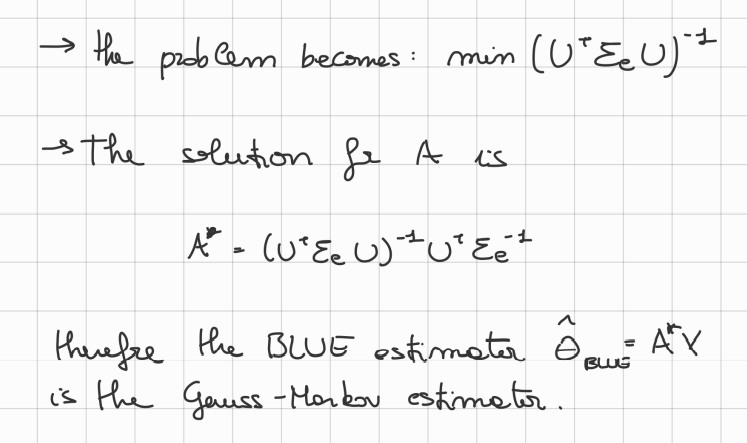 → the problem becomes: min (Uᵀ Σₑ U)⁻¹
→ The solution for A is
A* = (Uᵀ Σₑ U)⁻¹ Uᵀ Σₑ⁻¹
therefore the BLUE estimator Θ̂_BLUE = A*Y
is the Gauss-Markov estimator.